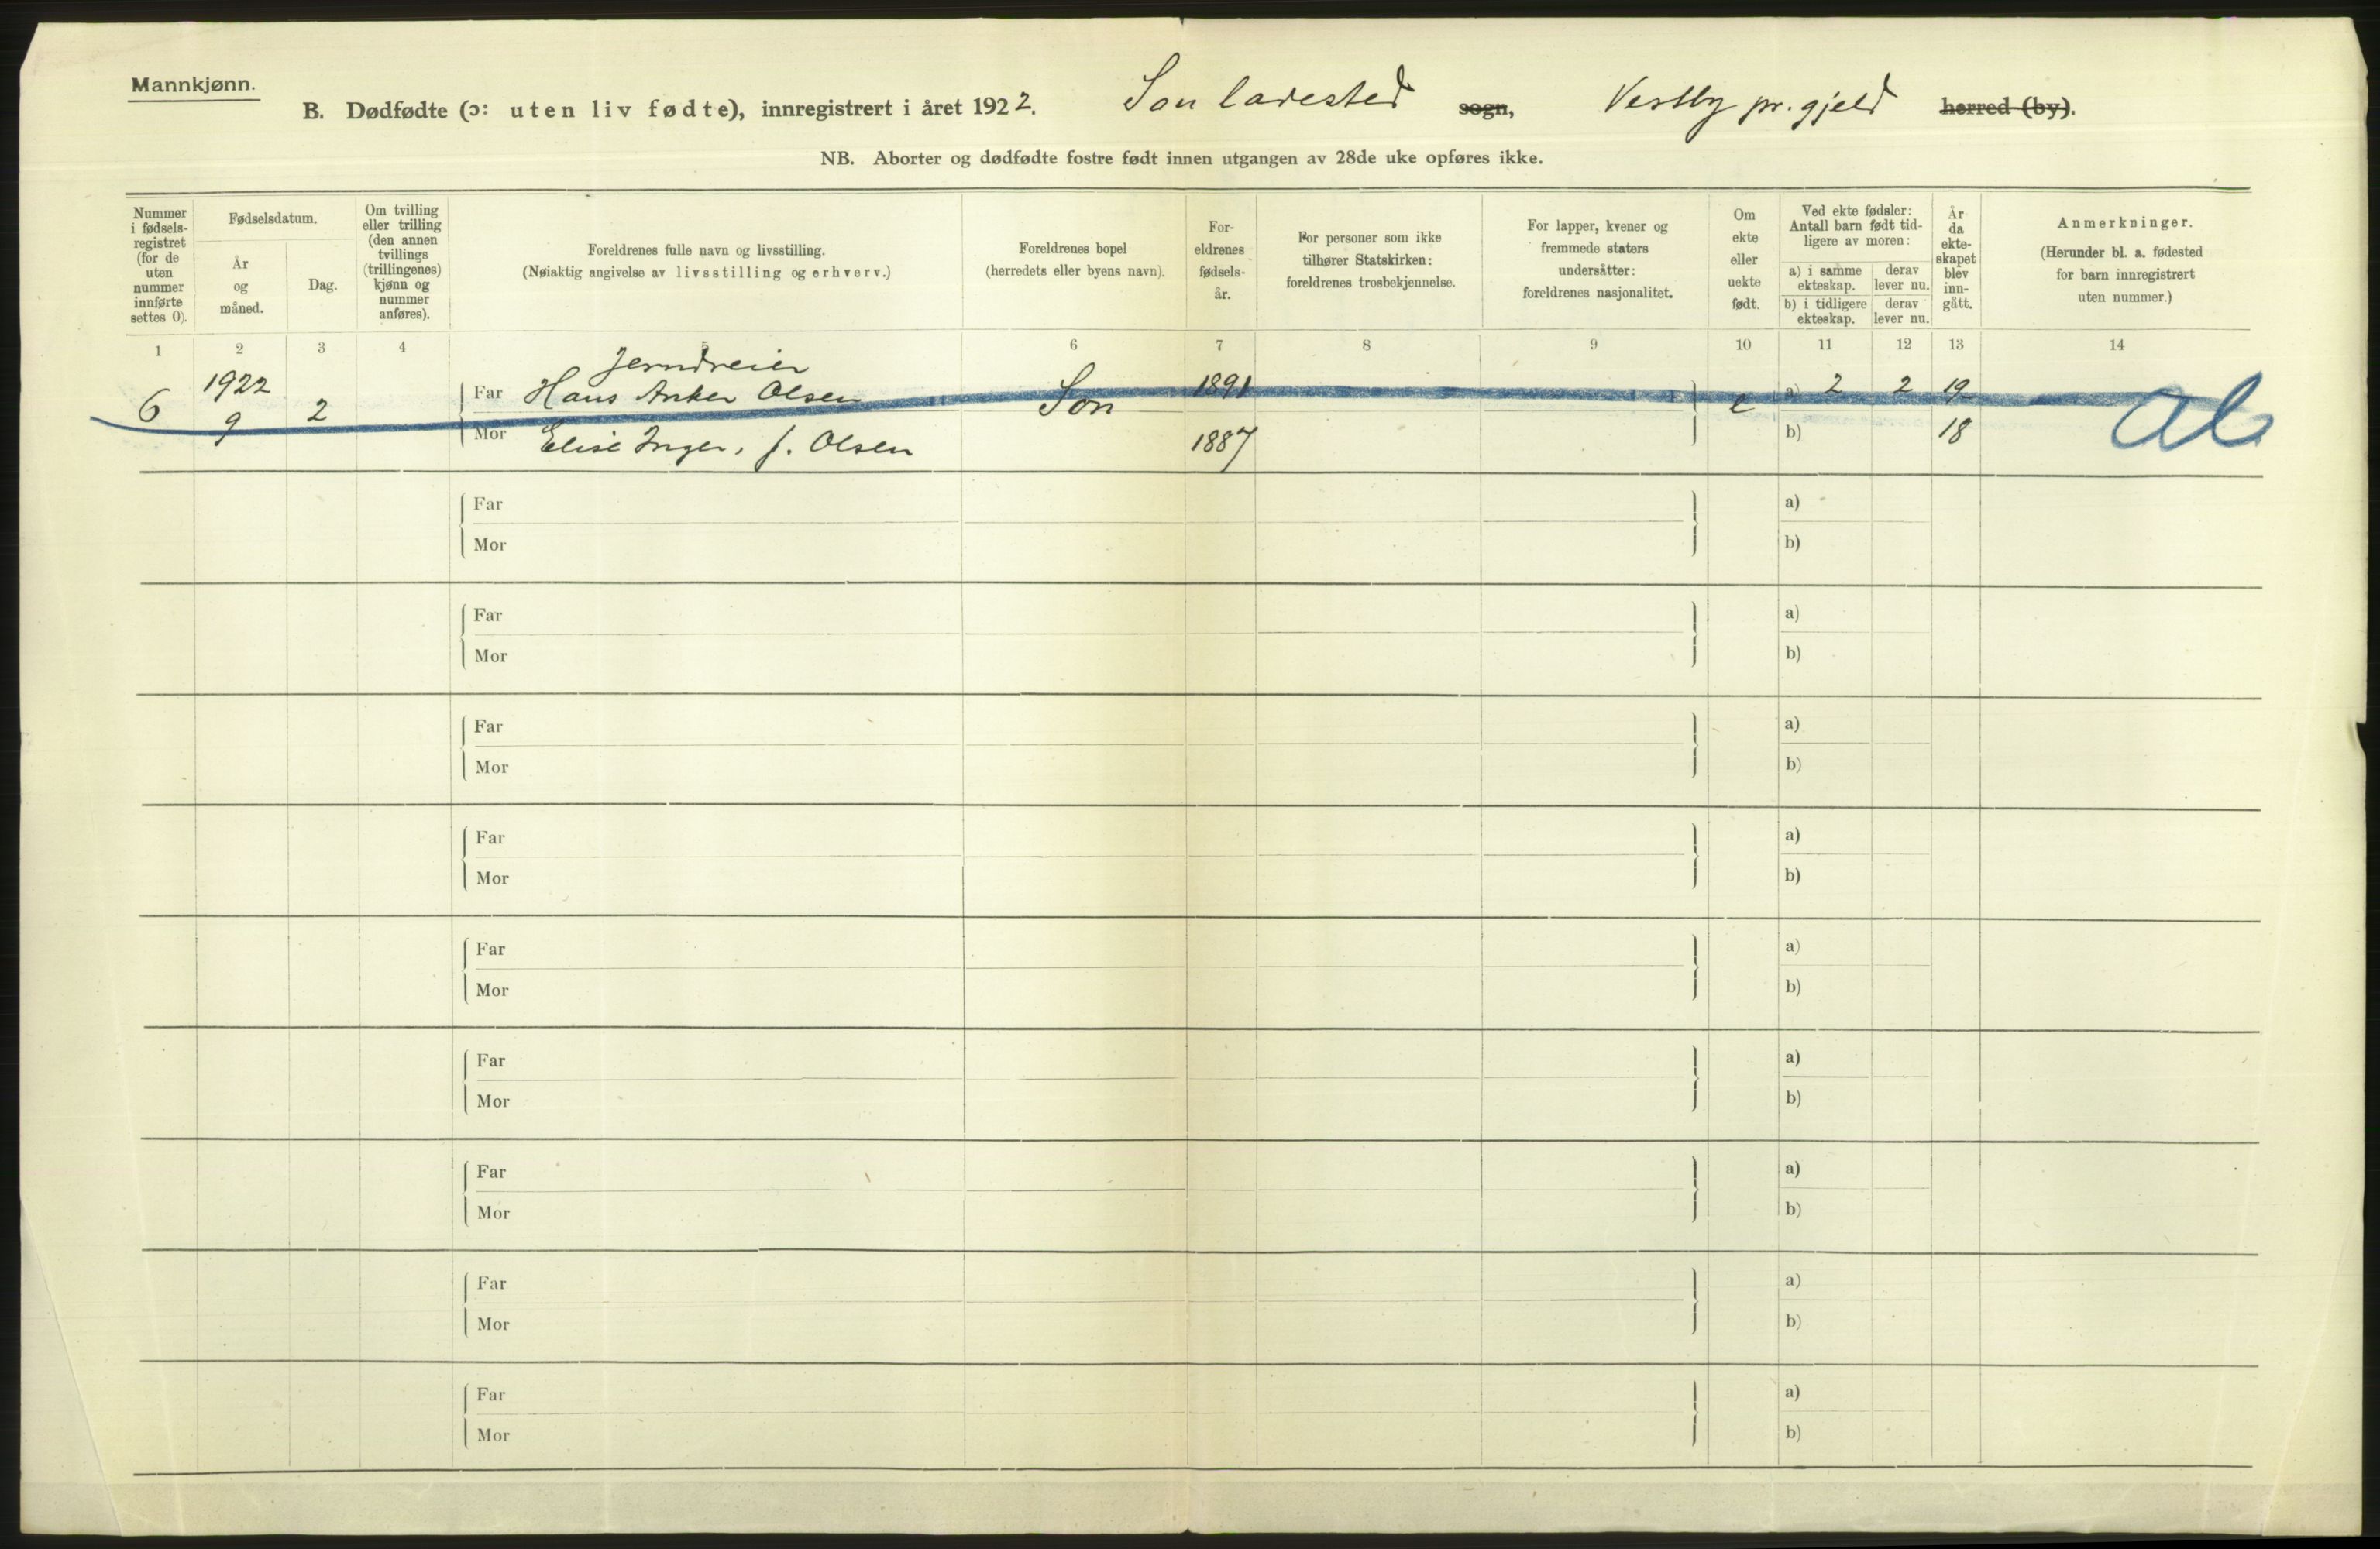 Mannkjønn.
B. Dødfødte (ɔ: uten liv fødte), innregistrert i året 1922. Son ladested sogn, Vestby pr.gjeld herred (by).
NB. Aborter og dødfødte fostre født innen utgangen av 28de uke opføres ikke.
Nummer i fødsels-registret (for de uten nummer innførte settes 0).
Fødselsdatum.
År og måned.
Dag.
Om tvilling eller trilling (den annen tvillings (trillingenes) kjønn og nummer anføres).
Foreldrenes fulle navn og livsstilling.
(Nøiaktig angivelse av livsstilling og erhverv.)
Foreldrenes bopel
(herredets eller byens navn).
For-eldrenes fødsels-år.
For personer som ikke tilhører Statskirken: foreldrenes trosbekjennelse.
For lapper, kvener og fremmede staters undersåtter: foreldrenes nasjonalitet.
Om ekte eller uekte født.
Ved ekte fødsler: Antall barn født tid-ligere av moren:
a) i samme ekteskap.
derav lever nu.
b) i tidligere ekteskap.
derav lever nu.
År da ekte-skapet blev inn-gått.
Anmerkninger.
(Herunder bl. a. fødested for barn innregistrert uten nummer.)
1 2 3 4 5 6 7 8 9 10 11 12 13 14
Jerndreier
6 1922 9 2 Far Hans Anker Olsen Son 1891 e a) 2 2 19
Mor Elise Inger, f. Olsen 1887 b) 18
Far a)
Mor b)
Far a)
Mor b)
Far a)
Mor b)
Far a)
Mor b)
Far a)
Mor b)
Far a)
Mor b)
Far a)
Mor b)
Far a)
Mor b)
Far a)
Mor b)